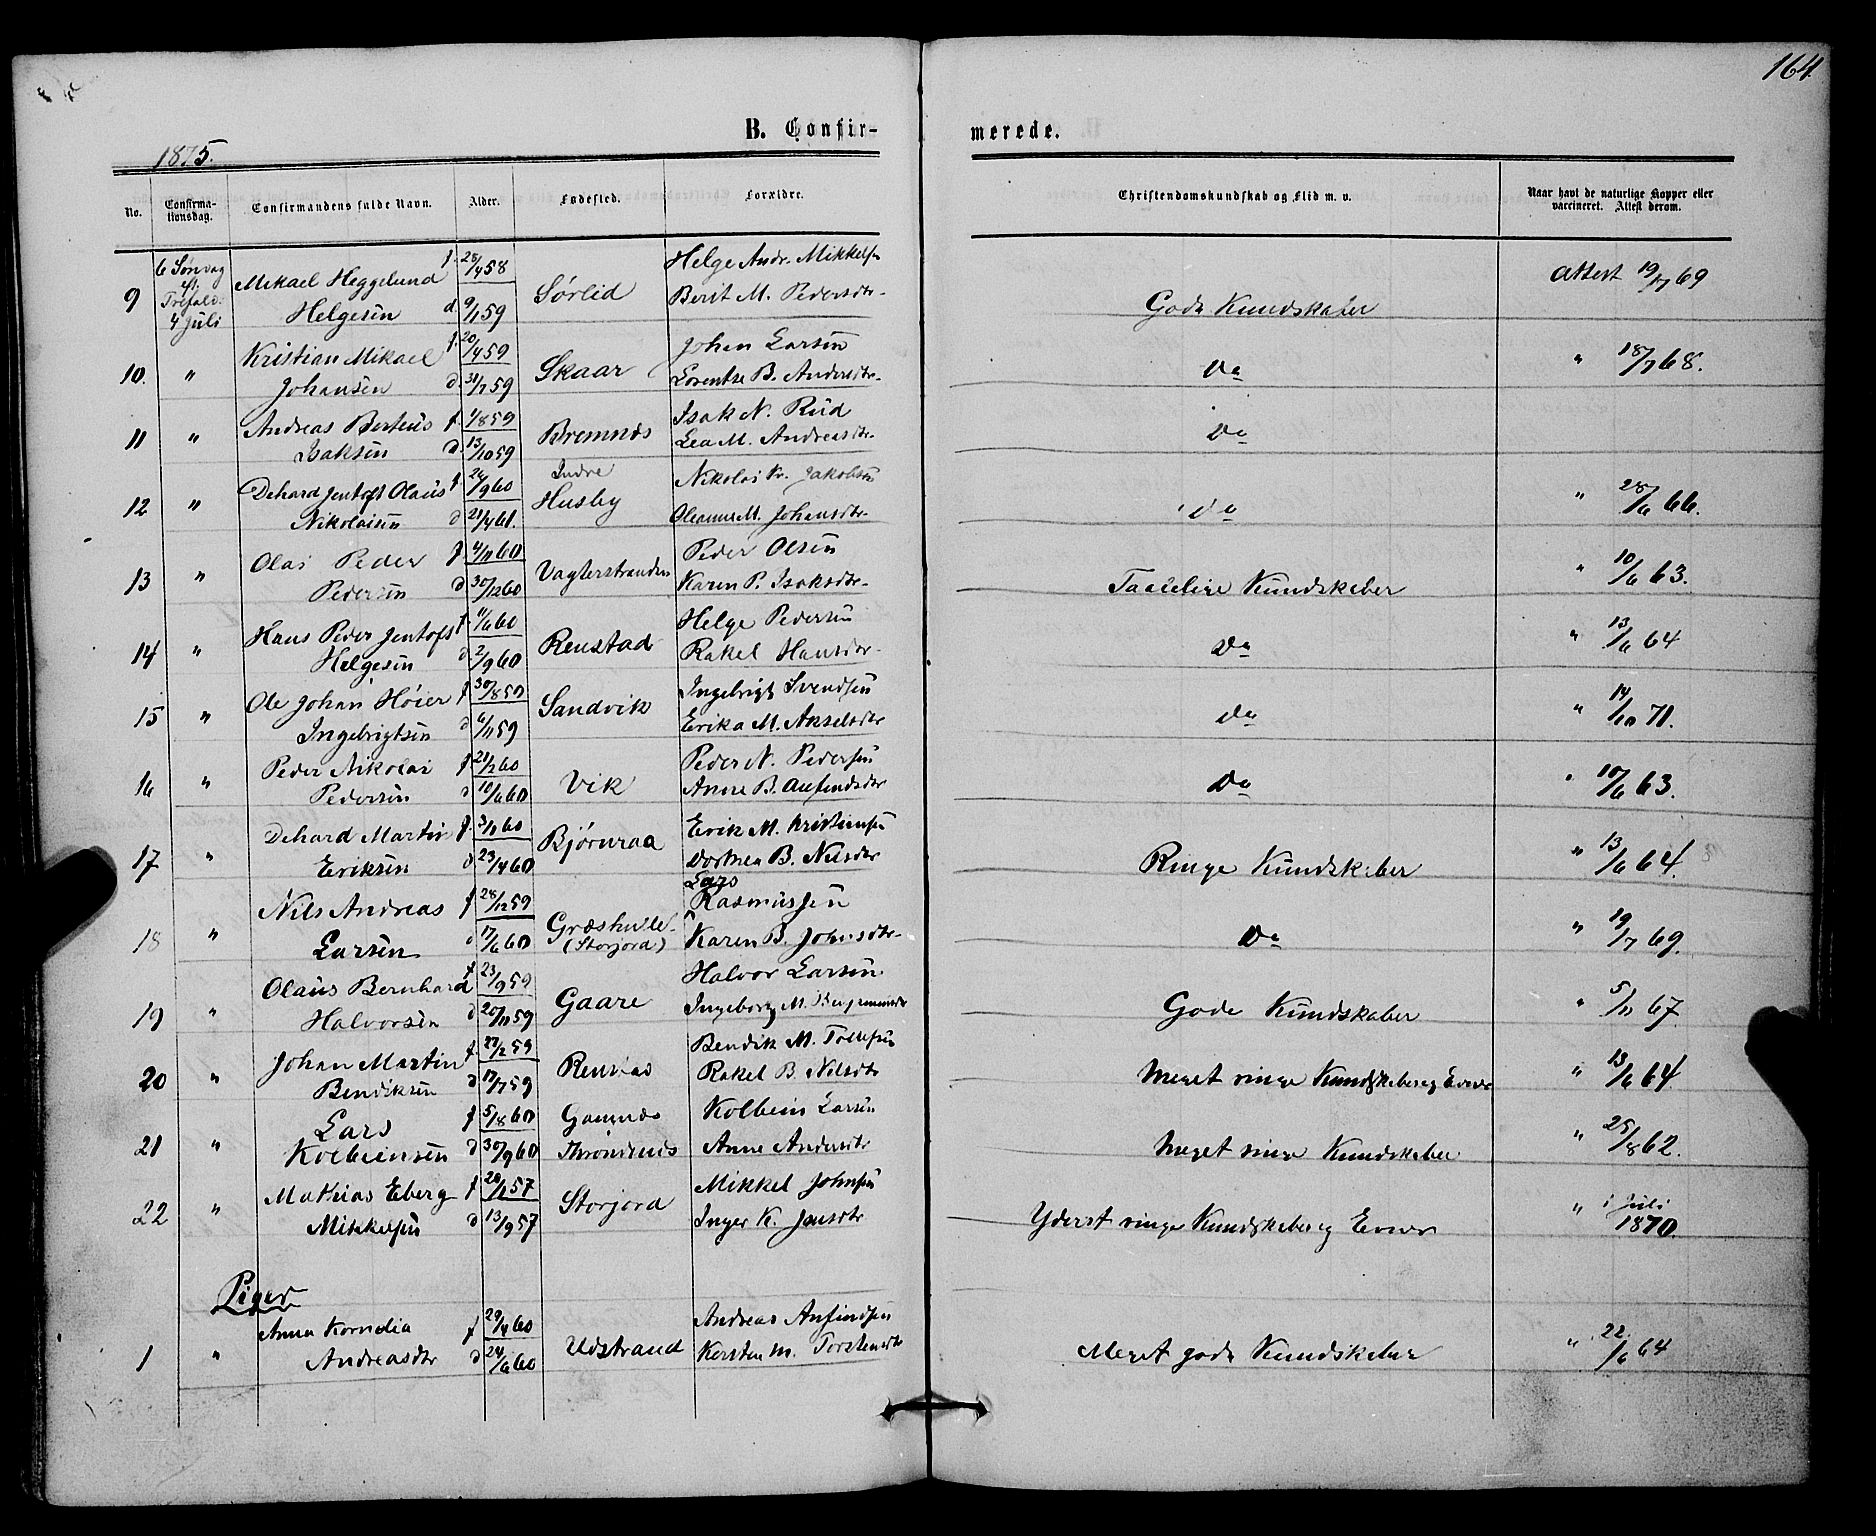 164
B. Confir-
merede.
1875.
No.
Confirma-
tionsdag.
Confirmandens fulde Navn.
Alder.
Fødested.
Forældre.
Christendomskundskab og Flid m. v.
Naar havt de naturlige Kopper eller
vaccineret. Attest derom.
6 Søndag
ef.
Trefold:
4 Juli
9 Mikael Heggelund f. 28/4 58 Sørlid Helge Andr. Mikkelsen Attest 19/7 69
Helgesen d. 9/1 59 Berit M. Pedersdtr. Gode Kundskaber
10. " Kristian Mikael f. 20/4 59 Skaar Johan Larsen Do " 18/7 68.
Johansen d 31/7 59 Lorentse B. Andersdtr.
11 " Andreas Berteus f. 1/8 59 Bremnes Isak N. Rud Do
Isaksen d. 13/10 59 Lea M. Andreasdtr.
12 " Dehard Jentoft Olaus f 26/9 60 Indre Husby Nikolai Kr. Jakobsen Do " 28/6 66.
Nikolaisen d 21/4 61. Oleanna M. Johansdtr.
13 " Olai Peder f. 4/11 60 Vagterstranden Peder Olsen Taalelige Kundskaber " 10/6 63.
Pedersen d 30/12 60 Karen P. Isaksdtr.
14 " Hans Peder Jentoft f. 11/6 60 Renstad Helge Pedersen Do " 13/6 64
Helgesen d 2/9 60 Rakel Hansdtr.
15 " Ole Johan Høier f 30/8 59 Sandvik Ingebrigt Svendsen Do " 14/10 71.
Ingebrigtsen d 6/11 59 Erika M. Akselsdtr
16 " Peder Nikolai f 21/2 60 Vik Peder N. Pedersen Do " 10/6 63.
Pedersen d 10/6 60 Anne B. Anfindsdtr
17 " Dehard Martin f. 3/1 60 Bjørnraa Erik M. Kristensen Ringe Kundskaber " 13/6 64.
Eriksen d 23/4 60 Dorthea B. Nilsdtr
18 " Nils Andreas f 28/12 59 Græshulle Lars Rasmussen Do " 19/7 69.
Larsen d 17/6 60 (Storjord) Karen B. Johnsdtr.
19 " Olaus Bernhard f 23/9 59 Gaare Halvor Larsen Gode Kundskaber " 5/11 67.
Halvorsen d 20/11 59 Ingeborg M.
20 " Johan Martin f. 22/2 59 Bendik M. Tollefsen Meget ringe Kundskaber og Evner " 13/6 64
Bendiksen d 17/7 59 Rakel B. Nilsdtr
21 " Lars f 5/8 60 Gamnes Kolbein Larsen Meget ringe Kundskaber " 25/8 62.
Kolbeinsen d 30/9 60 Throndenes Anne Andersdtr
22 " Mathias Eberg f 20/1 57 Storjord Mikkel Johnsen Yderst ringe Kundskaber og Evner " i Juli 1870.
Mikkelsen d 13/9 57 Inger K. Jensdtr
Piger
1 " Anna Kornelia f 29/4 60 Udstrand Andreas Anfindsen Meget gode Kundskaber " 22/6 64
Andreasdtr d 24/6 60 Kersten M. Torstensdtr